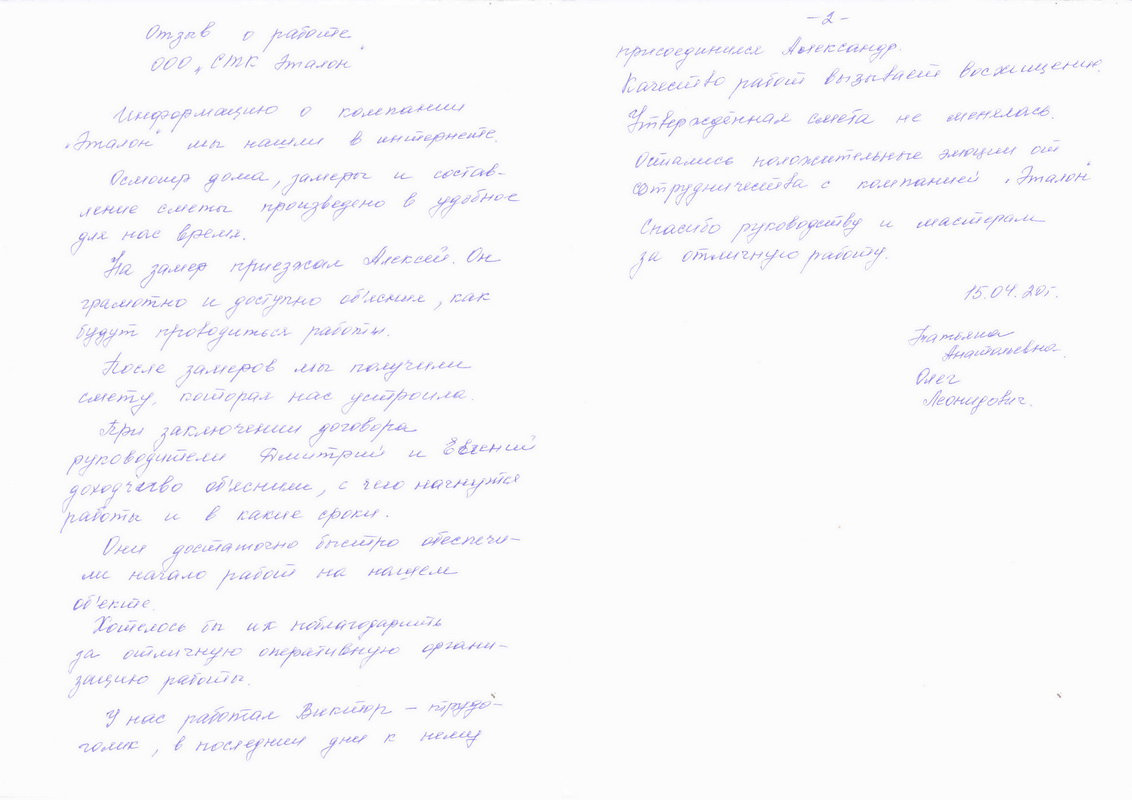 Отзыв о работе
ООО „СТК Эталон"
Информацию о компании
„Эталон" мы нашли в интернете.
Осмотр дома, замеры и состав-
ление сметы произведено в удобное
для нас время.
На замер приезжал Алексей. Он
грамотно и доступно об'яснил, как
будут проводиться работы.
После замеров мы получили
смету, которая нас устроила.
При заключении договора
руководители Дмитрий и Евгений
доходчиво об'яснили, с чего начнутся
работы и в какие сроки.
Они достаточно быстро обеспечи-
ли начало работ на нашем
об'екте.
Хотелось бы их поблагодарить
за отличную оперативную органи-
зацию работы.
У нас работал Виктор – трудо-
голик, в последние дни к нему
-2-
присоединился Александр.
Качество работ вызывает восхищение.
Утверждённая смета не менялась.
Остались положительные эмоции от
сотрудничества с компанией „Эталон"
Спасибо руководству и мастерам
за отличную работу.
15.04.20г.
Татьяна
Анатольевна.
Олег
Леонидович.